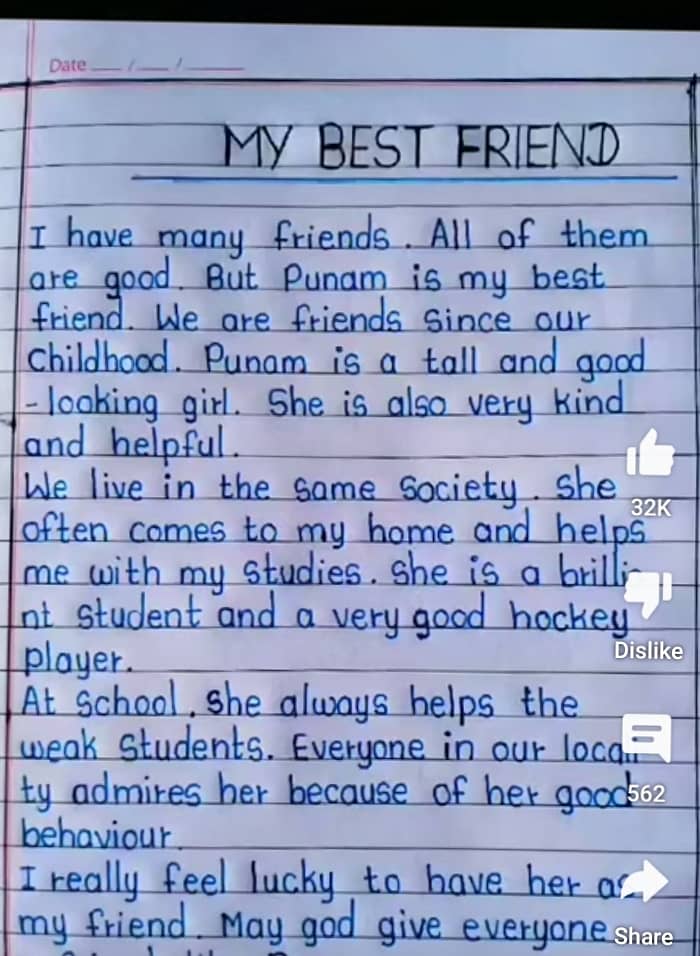 Date
MY BEST FRIEND
I have many friends. All of them
are good. But Punam is my best
friend. We are friends since our
Childhood. Punam is a tall and good
-looking girl. She is also very kind
and helpful.
We live in the same society. She
32K
often comes to my home and helps
me with my studies. She is a brillia
nt student and a very good hockey
Dislike
player.
At school, she always helps the
weak students. Everyone in our locali
ty admires her because of her good
562
behaviour.
I really feel lucky to have her as
my friend. May god give everyone
Share